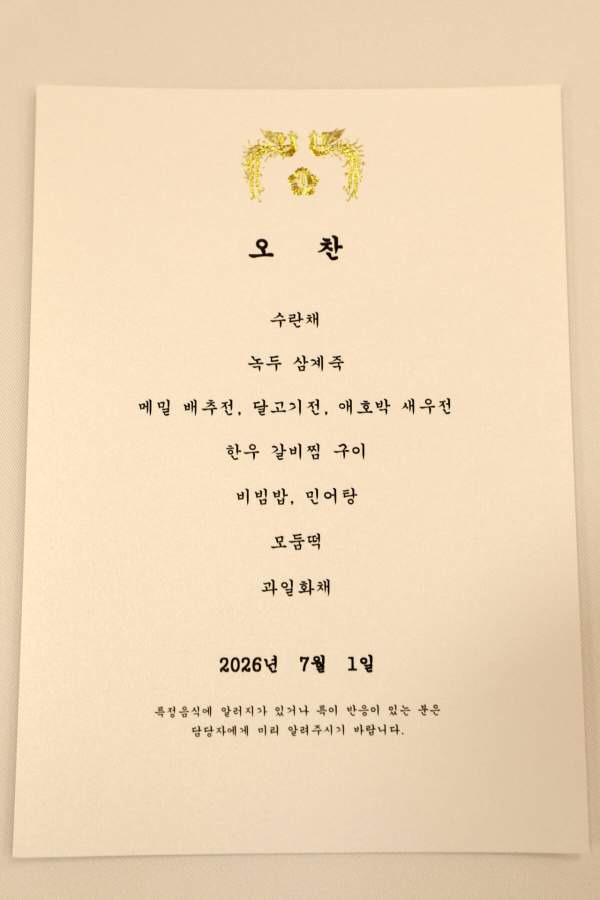 오 찬
수란채
녹두 삼계죽
메밀 배추전, 달고기전, 애호박 새우전
한우 갈비찜 구이
비빔밥, 민어탕
모둠떡
과일화채
2026년 7월 1일
특정음식에 알러지가 있거나 특이 반응이 있는 분은
담당자에게 미리 알려주시기 바랍니다.